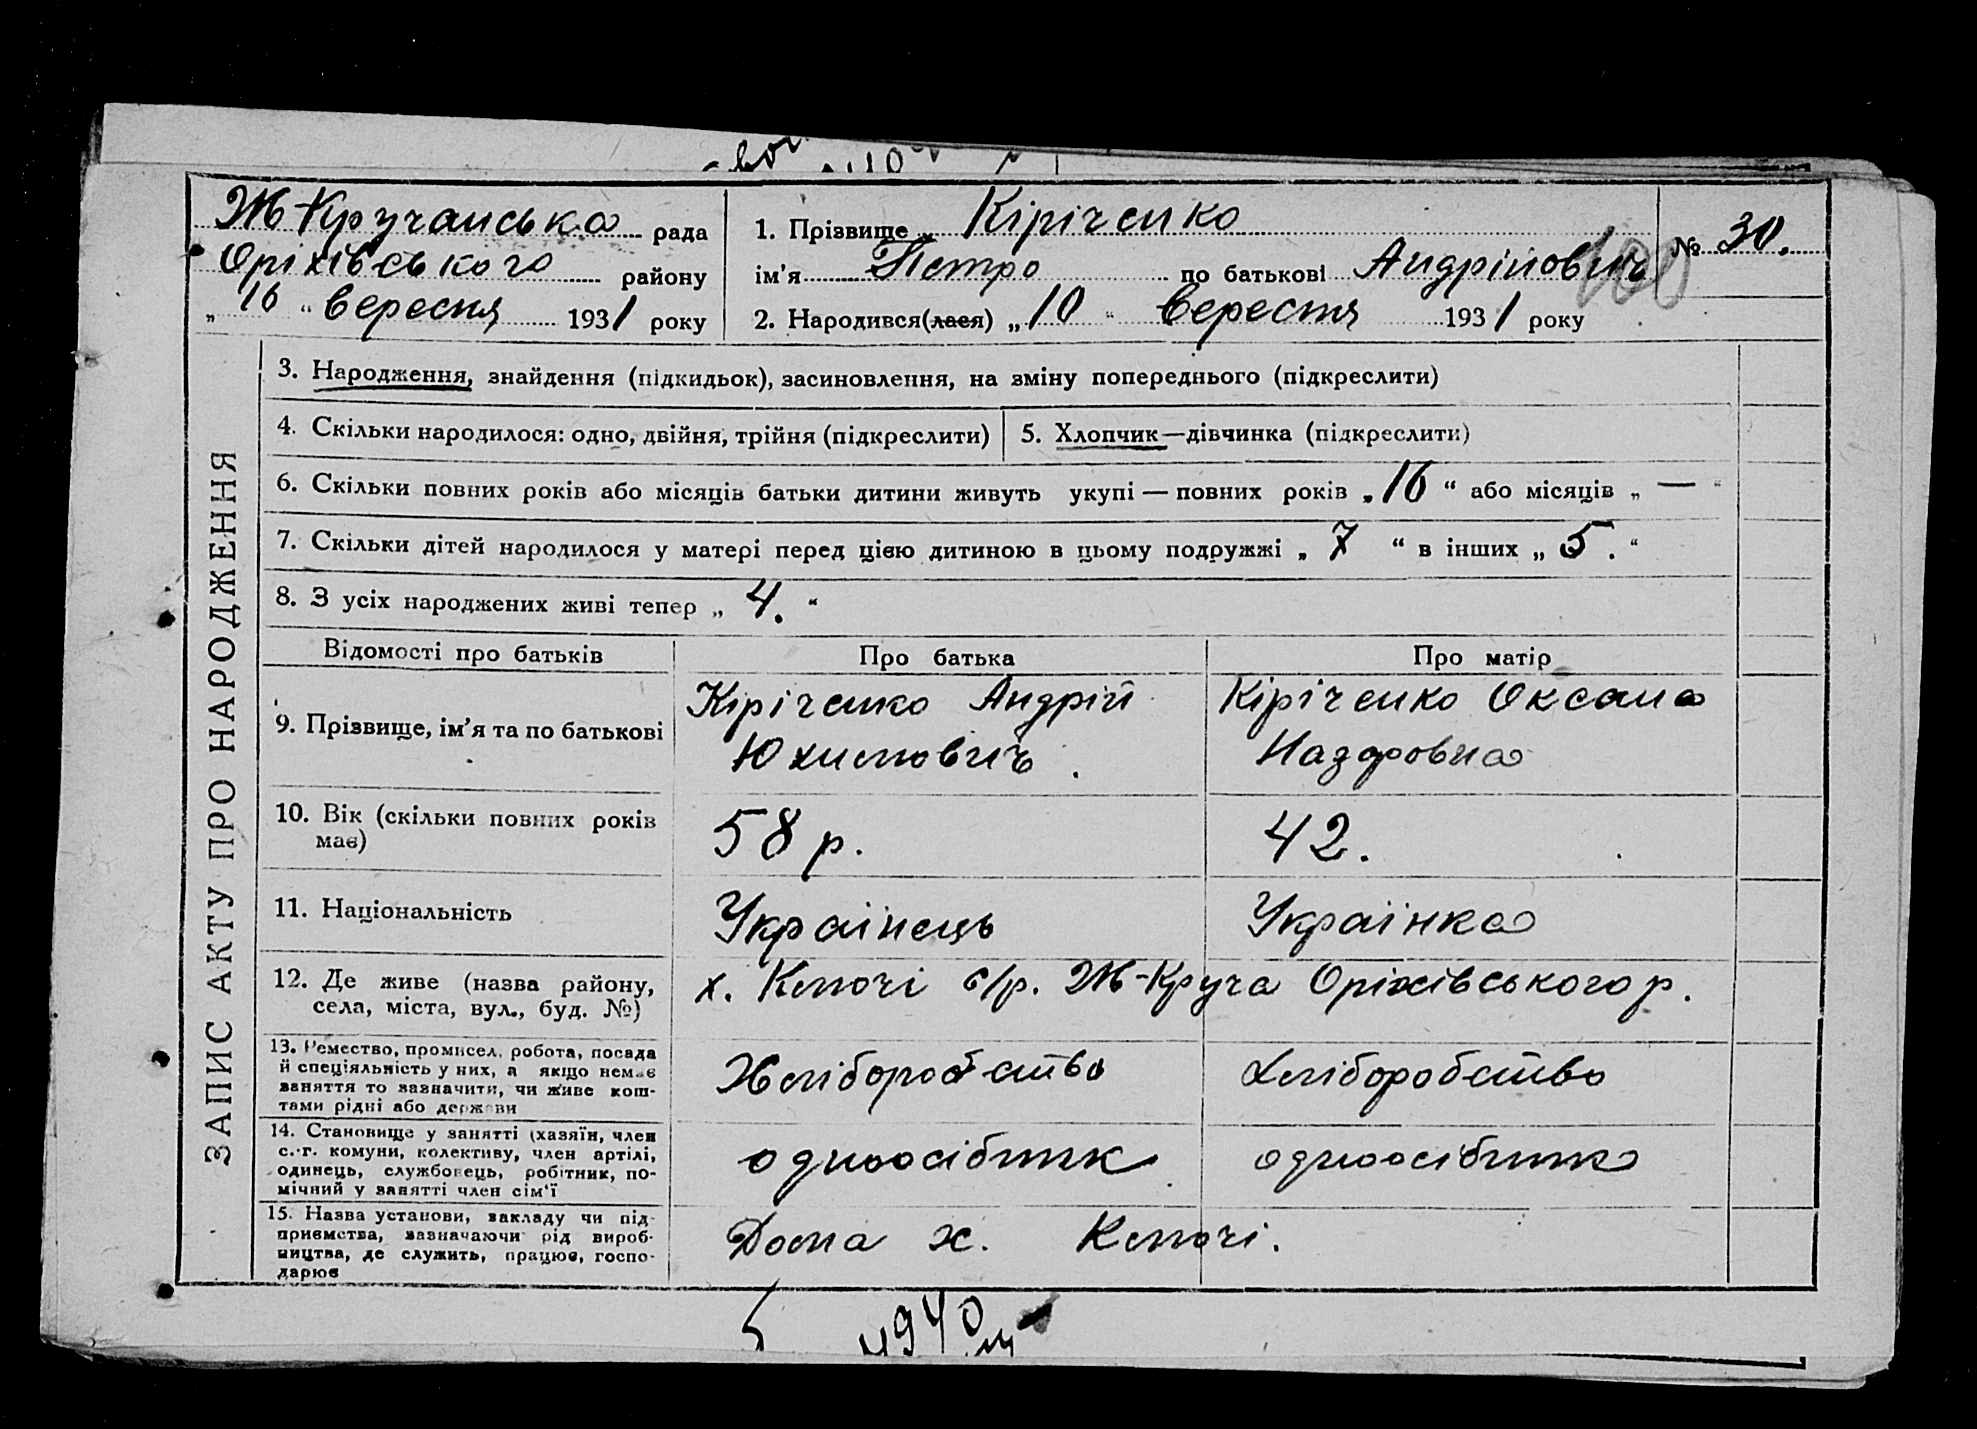 Ж-Кручанська рада
Оріхівського району
„ 16 “ вересня 1931 року
1. Прізвище Кіріченко
№ 30.
ім’я Петро по батькові Андрійович
2. Народився(лася) „ 10 “ вересня 1931 року
ЗАПИС АКТУ ПРО НАРОДЖЕННЯ
3. Народження, знайдення (підкидьок), засиновлення, на зміну попереднього (підкреслити)
4. Скільки народилося: одно, двійня, трійня (підкреслити)
5. Хлопчик—дівчинка (підкреслити)
6. Скільки повних років або місяців батьки дитини живуть укупі — повних років „ 16 “ або місяців „ — “
7. Скільки дітей народилося у матері перед цією дитиною в цьому подружжі „ 7 “ в інших „ 5. “
8. З усіх народжених живі тепер „ 4. “
Відомості про батьків
Про батька
Про матір
9. Прізвище, ім’я та по батькові
Кіріченко Андрій
Юхимович.
Кіріченко Оксана
10. Вік (скільки повних років
має)
58 р.
42.
11. Національність
Українець
Українка
12. Де живе (назва району,
села, міста, вул., буд. №)
х. Ключі с/р. Ж-Круча Оріхівського р.
13. Ремество, промисел, робота, посада
й спеціяльність у них, а якщо немає
заняття то зазначити, чи живе кош-
тами рідні або держави
Хліборобство
хліборобство
14. Становище у занятті (хазяїн, член
с.-г. комуни, колективу, член артілі,
одинець, службовець, робітник, по-
мічний у занятті член сім’ї
одноосібник
одноосібник
15. Назва установи, закладу чи під-
приємства, зазначаючи рід вироб-
ництва, де служить, працює, госпо-
дарює
Дома х. Ключі.